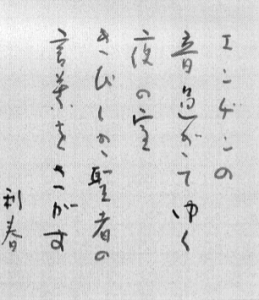 エンヂンの
音過ぎてゆく
夜の室
きびしか聖者の
言葉をさがす
利春